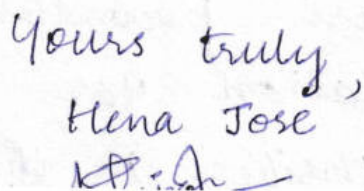 Yours truly,
Hena Jose